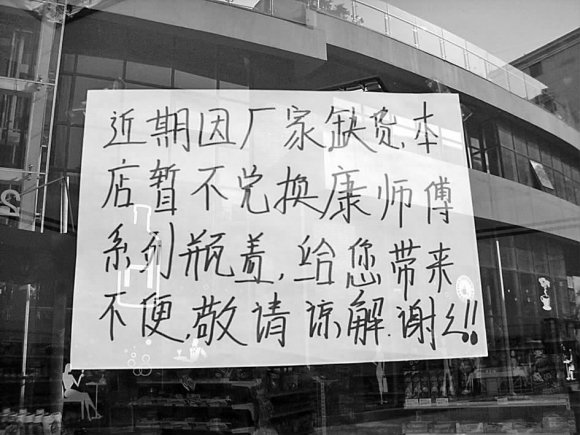 近期因厂家缺货,本
店暂不兑换康师傅
系列瓶盖,给您带来
不便,敬请谅解.谢么!!
2